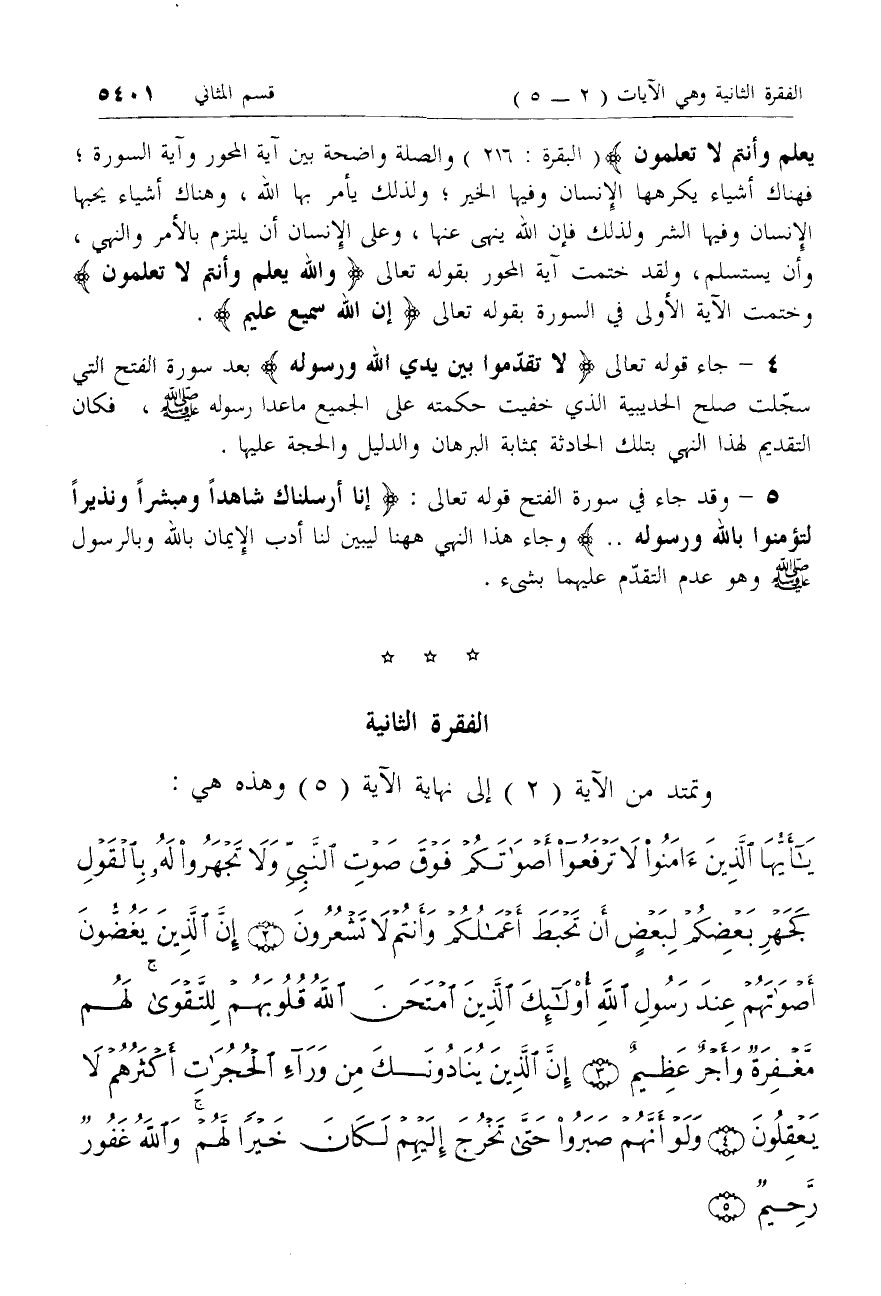 الفقرة الثانية وهي الآيات ( ٢ – ٥ ) قسم المثاني ٥٤٠١
يعلم وأنتم لا تعلمون ﴾( البقرة : ٢١٦ ) والصلة واضحة بين آية المحور وآية السورة ؛
فهناك أشياء يكرهها الإنسان وفيها الخير ؛ ولذلك يأمر بها الله ، وهناك أشياء يحبها
الإنسان وفيها الشر ولذلك فإن الله ينهى عنها ، وعلى الإنسان أن يلتزم بالأمر والنهي ،
وأن يستسلم، ولقد ختمت آية المحور بقوله تعالى ﴿ والله يعلم وأنتم لا تعلمون ﴾
وختمت الآية الأولى في السورة بقوله تعالى ﴿ إن الله سميع عليم ﴾ .
٤ – جاء قوله تعالى ﴿ لا تقدّموا بين يدي الله ورسوله ﴾ بعد سورة الفتح التي
سجّلت صلح الحديبية الذي خفيت حكمته على الجميع ماعدا رسوله ﷺ ، فكان
التقديم لهذا النهي بتلك الحادثة بمثابة البرهان والدليل والحجة عليها .
٥ – وقد جاء في سورة الفتح قوله تعالى : ﴿ إنا أرسلناك شاهداً ومبشراً ونذيراً
لتؤمنوا بالله ورسوله .. ﴾ وجاء هذا النهي ههنا ليبين لنا أدب الإيمان بالله وبالرسول
ﷺ وهو عدم التقدّم عليهما بشىء .
☆ ☆ ☆
الفقرة الثانية
وتمتد من الآية ( ٢ ) إلى نهاية الآية ( ٥ ) وهذه هي :
يَـٰٓأَيُّهَا ٱلَّذِينَ ءَامَنُوا۟ لَا تَرْفَعُوٓا۟ أَصْوَٰتَكُمْ فَوْقَ صَوْتِ ٱلنَّبِىِّ وَلَا تَجْهَرُوا۟ لَهُۥ بِٱلْقَوْلِ
كَجَهْرِ بَعْضِكُمْ لِبَعْضٍ أَن تَحْبَطَ أَعْمَـٰلُكُمْ وَأَنتُمْ لَا تَشْعُرُونَ ﴿٢﴾ إِنَّ ٱلَّذِينَ يَغُضُّونَ
أَصْوَٰتَهُمْ عِندَ رَسُولِ ٱللَّهِ أُو۟لَـٰٓئِكَ ٱلَّذِينَ ٱمْتَحَنَ ٱللَّهُ قُلُوبَهُمْ لِلتَّقْوَىٰ ۚ لَهُم
مَّغْفِرَةٌ وَأَجْرٌ عَظِيمٌ ﴿٣﴾ إِنَّ ٱلَّذِينَ يُنَادُونَكَ مِن وَرَآءِ ٱلْحُجُرَٰتِ أَكْثَرُهُمْ لَا
يَعْقِلُونَ ﴿٤﴾ وَلَوْ أَنَّهُمْ صَبَرُوا۟ حَتَّىٰ تَخْرُجَ إِلَيْهِمْ لَكَانَ خَيْرًا لَّهُمْ ۚ وَٱللَّهُ غَفُورٌ
رَّحِيمٌ ﴿٥﴾